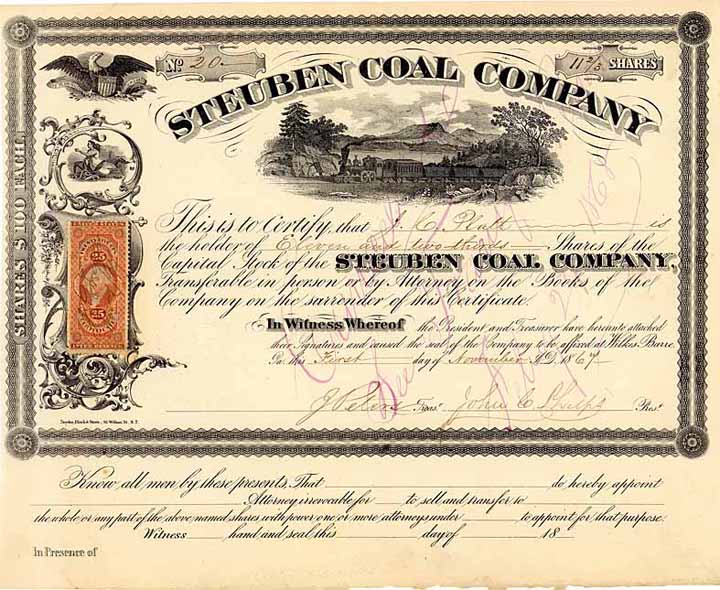 No. 20
11 2/3 SHARES
STEUBEN COAL COMPANY
SHARES $100 EACH.
This is to Certify, that J. C. Platt is
the holder of Eleven and two thirds Shares of the
Capital Stock of the STEUBEN COAL COMPANY,
Transferable in person or by Attorney on the Books of the
Company on the surrender of this Certificate.
In Witness Whereof the President and Treasurer have hereunto attached
their Signatures and caused the seal of the Company to be affixed at Wilkes Barre
Pa. this First day of November A.D. 1867
Treas. John C. Phelps Pres.
25
25
Know all men by these presents, That do hereby appoint
Attorney irrevocable for to sell and transfer to
the whole or any part of the above named shares with power one or more attorneys under to appoint for that purpose.
Witness hand and seal this day of 18
In Presence of